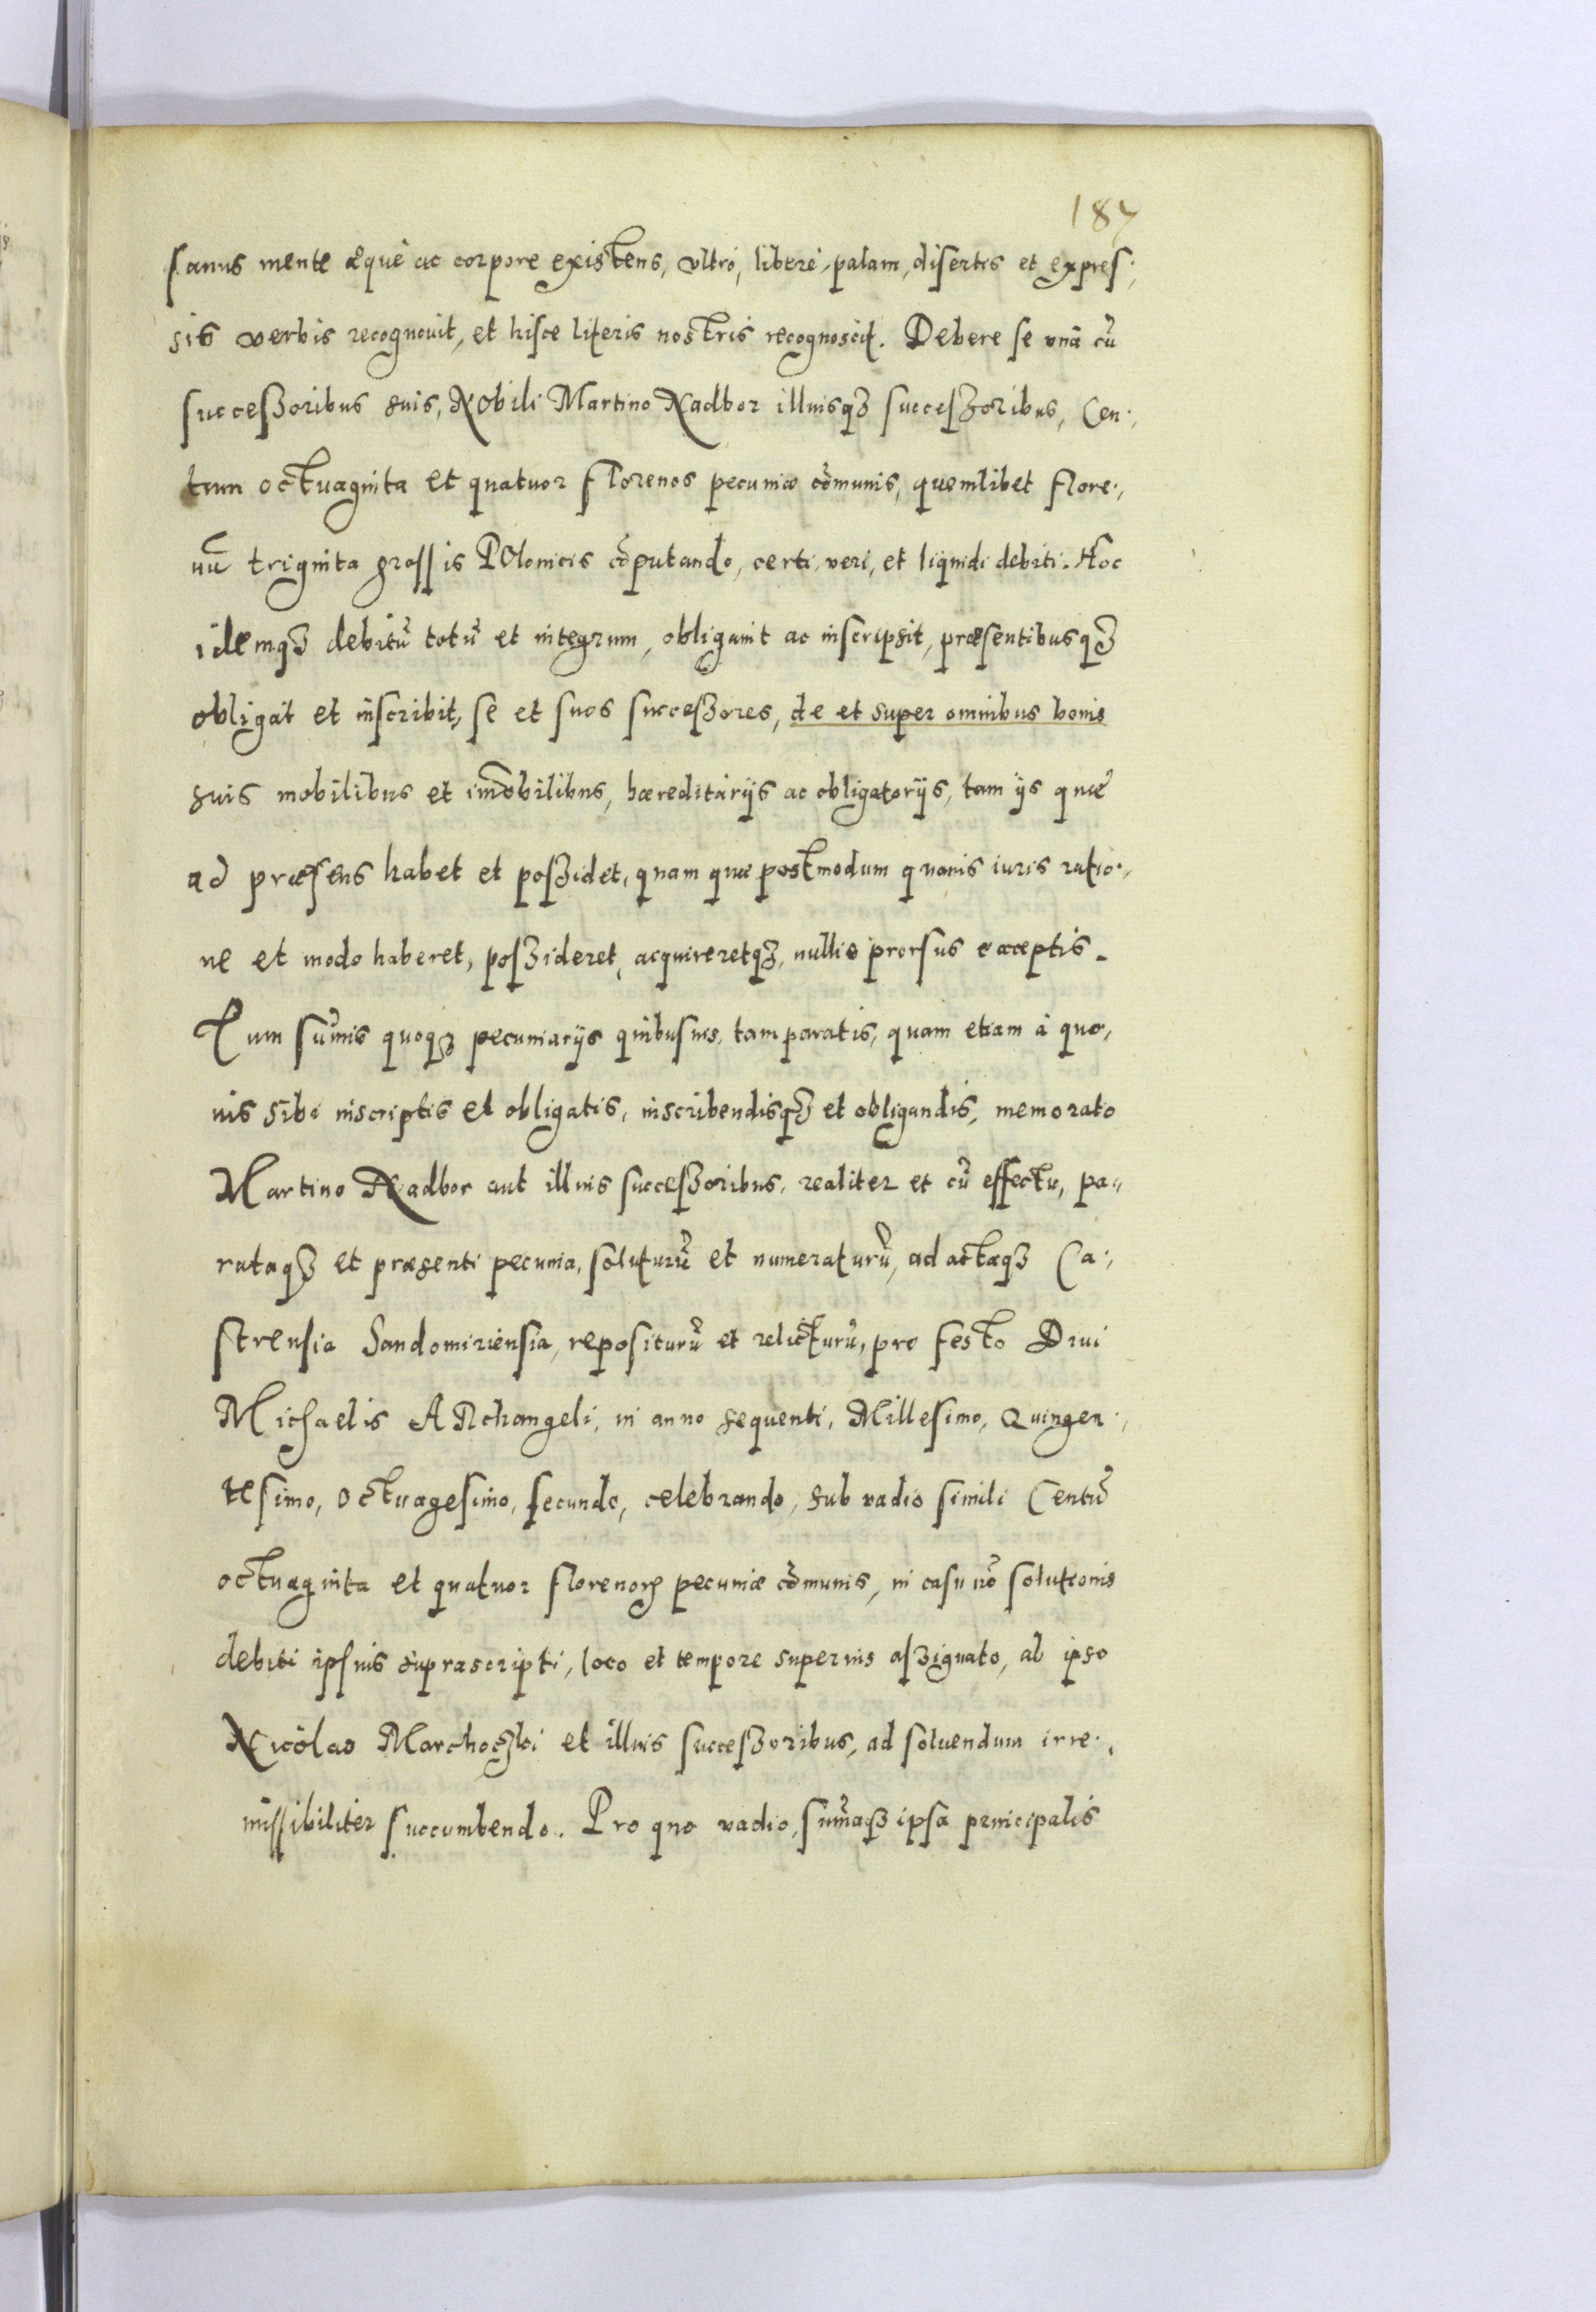 187
sanus mente æquè ac corpore existens, vltrò, liberè, palam, disertis et expres-
sis verbis recognouit, et hisce literis nostris recognoscit. Debere se vnà cũ
successoribus suis, Nobili Martino Nadbor illiusqꝫ successoribus, Cen-
tum octuaginta et quatuor florenos pecuniæ cõmunis, quemlibet flore-
nũ triginta grossis Polonicis cõputando, certi, veri, et liquidi debiti. Hoc
idemqꝫ debitũ totũ et integrum, obligauit ac inscripsit, præsentibusqꝫ
obligat et inscribit, se et suos successores, de et super omnibus bonis
suis mobilibus et im̃obilibus, hæreditarijs ac obligatorijs, tam ijs quæ
ad præsens habet et possidet, quam quæ postmodum quouis iuris ratio-
ne et modo haberet, possideret, acquireretqꝫ, nullis prorsus exceptis.
Tum sum̃is quoqꝫ pecuniarijs quibusuis, tam paratis, quam etiam à quo-
uis sibi inscriptis et obligatis, inscribendisqꝫ et obligandis, memorato
Martino Nadbor aut illius successoribus, realiter et cũ effectu, pa-
rataqꝫ et præsenti pecunia, soluturũ et numeraturũ, ad actaqꝫ Ca-
strensia Sandomiriensia, repositurũ et relicturũ, pro festo Diui
Michaelis Archangeli, in anno sequenti, Millesimo, Quingen-
tesimo, octuagesimo, secundo, celebrando, sub vadio simili Centũ
octuaginta et quatuor florenorꝫ pecuniæ cõmunis, in casu nõ solutionis
debiti ipsius suprascripti, loco et tempore superius assignato, ab ipso
Nicolao Marchoczki et illius successoribus, ad soluendum irre-
missibiliter succumbendo. Pro quo vadio, sum̃aqꝫ ipsa principalis